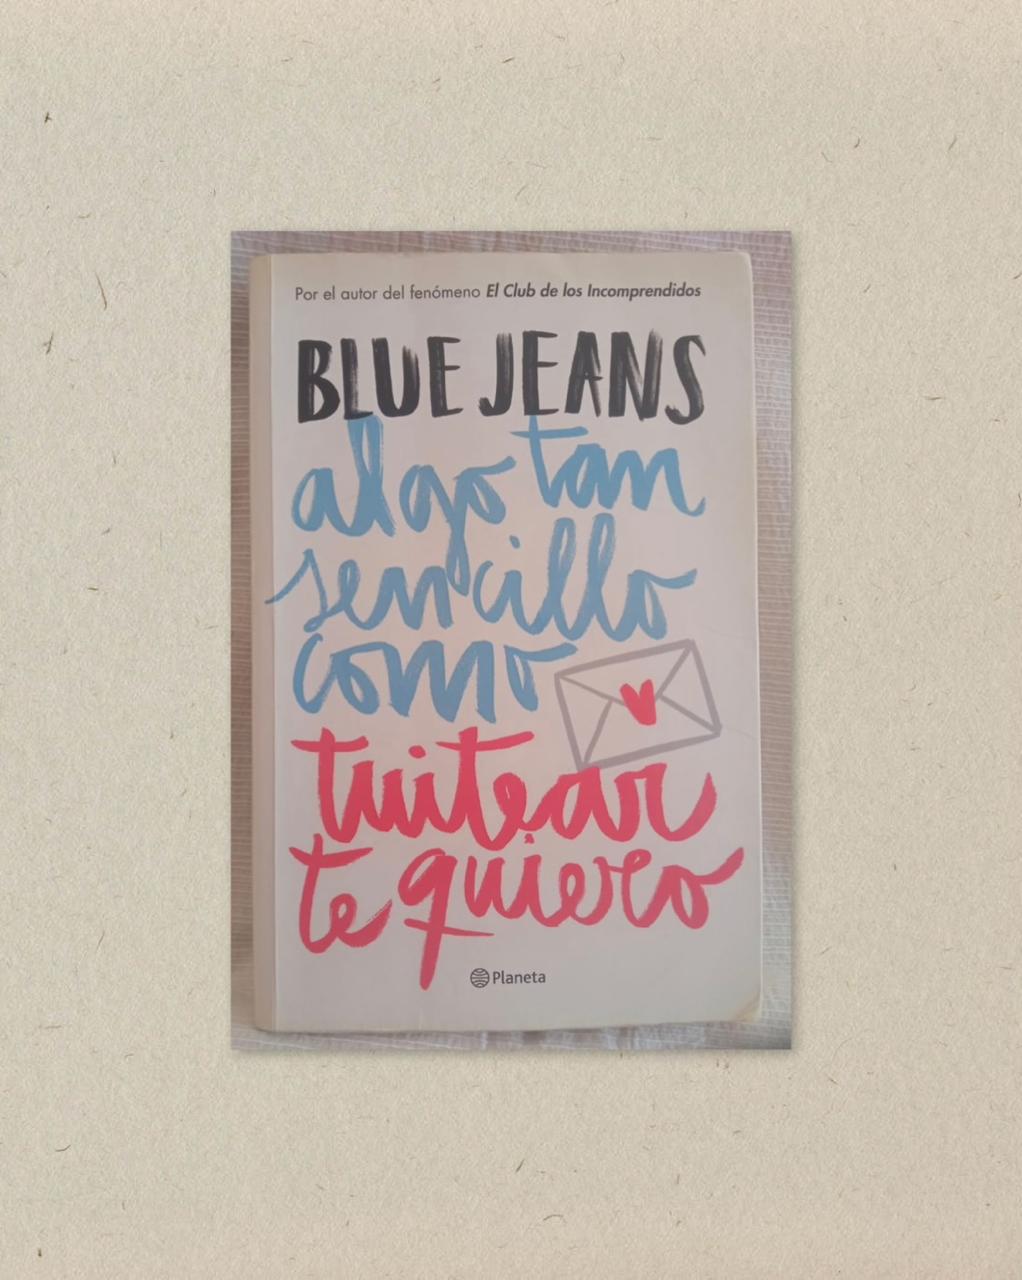 Por el autor del fenómeno El Club de los Incomprendidos
BLUE JEANS
algo tan
sencillo
como
tuitear
te quiero
Planeta